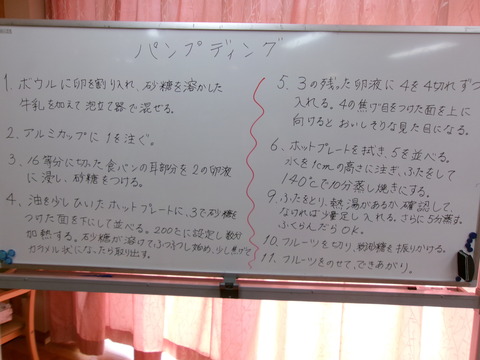 パンプディング
1. ボウルに卵を割り入れ、砂糖を溶かした
牛乳を加えて泡立て器で混ぜる。
2. アルミカップに1を注ぐ。
3. 16等分に切った食パンの耳部分を2の卵液
に浸し、砂糖をつける。
4. 油を少しひいたホットプレートに、3で砂糖を
つけた面を下にして並べる。200℃に設定し数分
加熱する。砂糖が溶けてふつふつし始め、少し焦げて
カラメル状になったら取り出す。
5. 3の残った卵液に4を4切れずつ
入れる。4の焦げ目をつけた面を上に
向けるとおいしそうな見た目になる。
6. ホットプレートを拭き、5を並べる。
水を1cmの高さに注ぎ、ふたをして
140℃で10分蒸し焼きにする。
9. ふたをとり、熱湯があるか確認して
なければ少量足し入れる。さらに5分蒸す。
ふくらんだらOK。
10. フルーツを切り、粉砂糖を振りかける。
11. フルーツをのせて、できあがり。